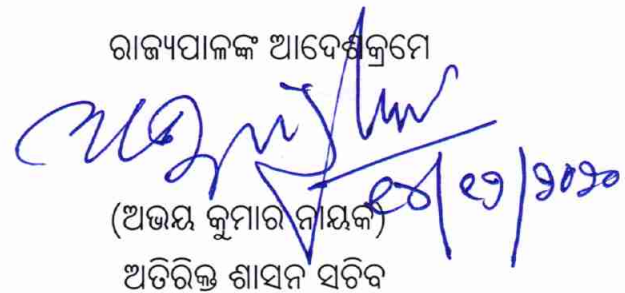 ରାଜ୍ୟପାଳଙ୍କ ଆଦେଶକ୍ରମେ
(ଅଭୟ କୁମାର ନାୟକ)
ଅତିରିକ୍ତ ଶାସନ ସଚିବ